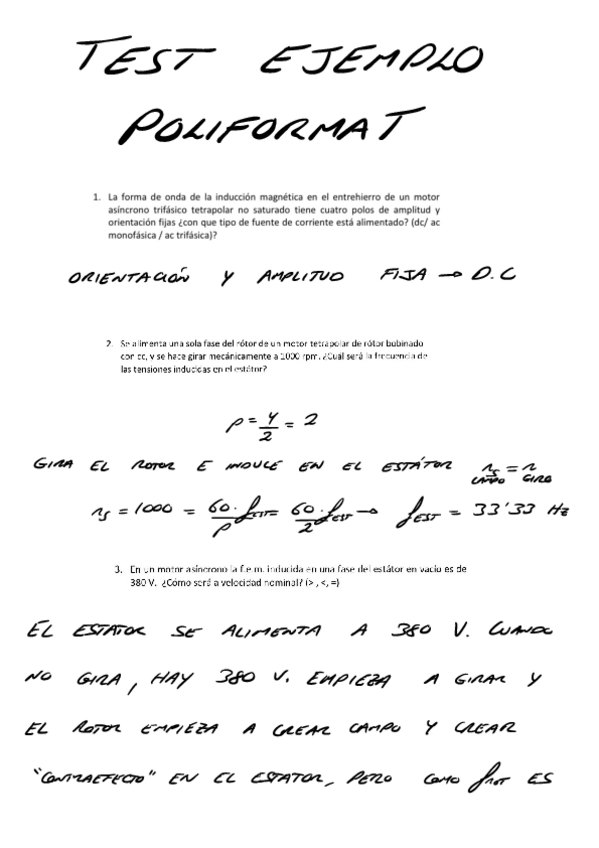 TEST EJEMPLO
POLIFORMAT
1. La forma de onda de la inducción magnética en el entrehierro de un motor
asíncrono trifásico tetrapolar no saturado tiene cuatro polos de amplitud y
orientación fijas ¿con que tipo de fuente de corriente está alimentado? (dc/ ac
monofásica / ac trifásica)?
ORIENTACIÓN Y AMPLITUD FIJA → D.C
2. Se alimenta una sola fase del rótor de un motor tetrapolar de rótor bobinado
con cc, y se hace girar mecánicamente a 1000 rpm. ¿Cuál será la frecuencia de
las tensiones inducidas en el estátor?
p = 4/2 = 2
GIRA EL ROTOR E INDUCE EN EL ESTÁTOR ns = n
CAMPO GIRO
ns = 1000 = 60·fEST/p = 60·fEST/2 → fEST = 33'33 Hz
3. En un motor asíncrono la f.e.m. inducida en una fase del estátor en vacío es de
380 V. ¿Cómo será a velocidad nominal? (> , <, =)
EL ESTATOR SE ALIMENTA A 380 V. CUANDO
NO GIRA, HAY 380 V. EMPIEZA A GIRAR Y
EL ROTOR EMPIEZA A CREAR CAMPO Y CREAR
"CONTRAEFECTO" EN EL ESTATOR, PERO COMO fROT ES